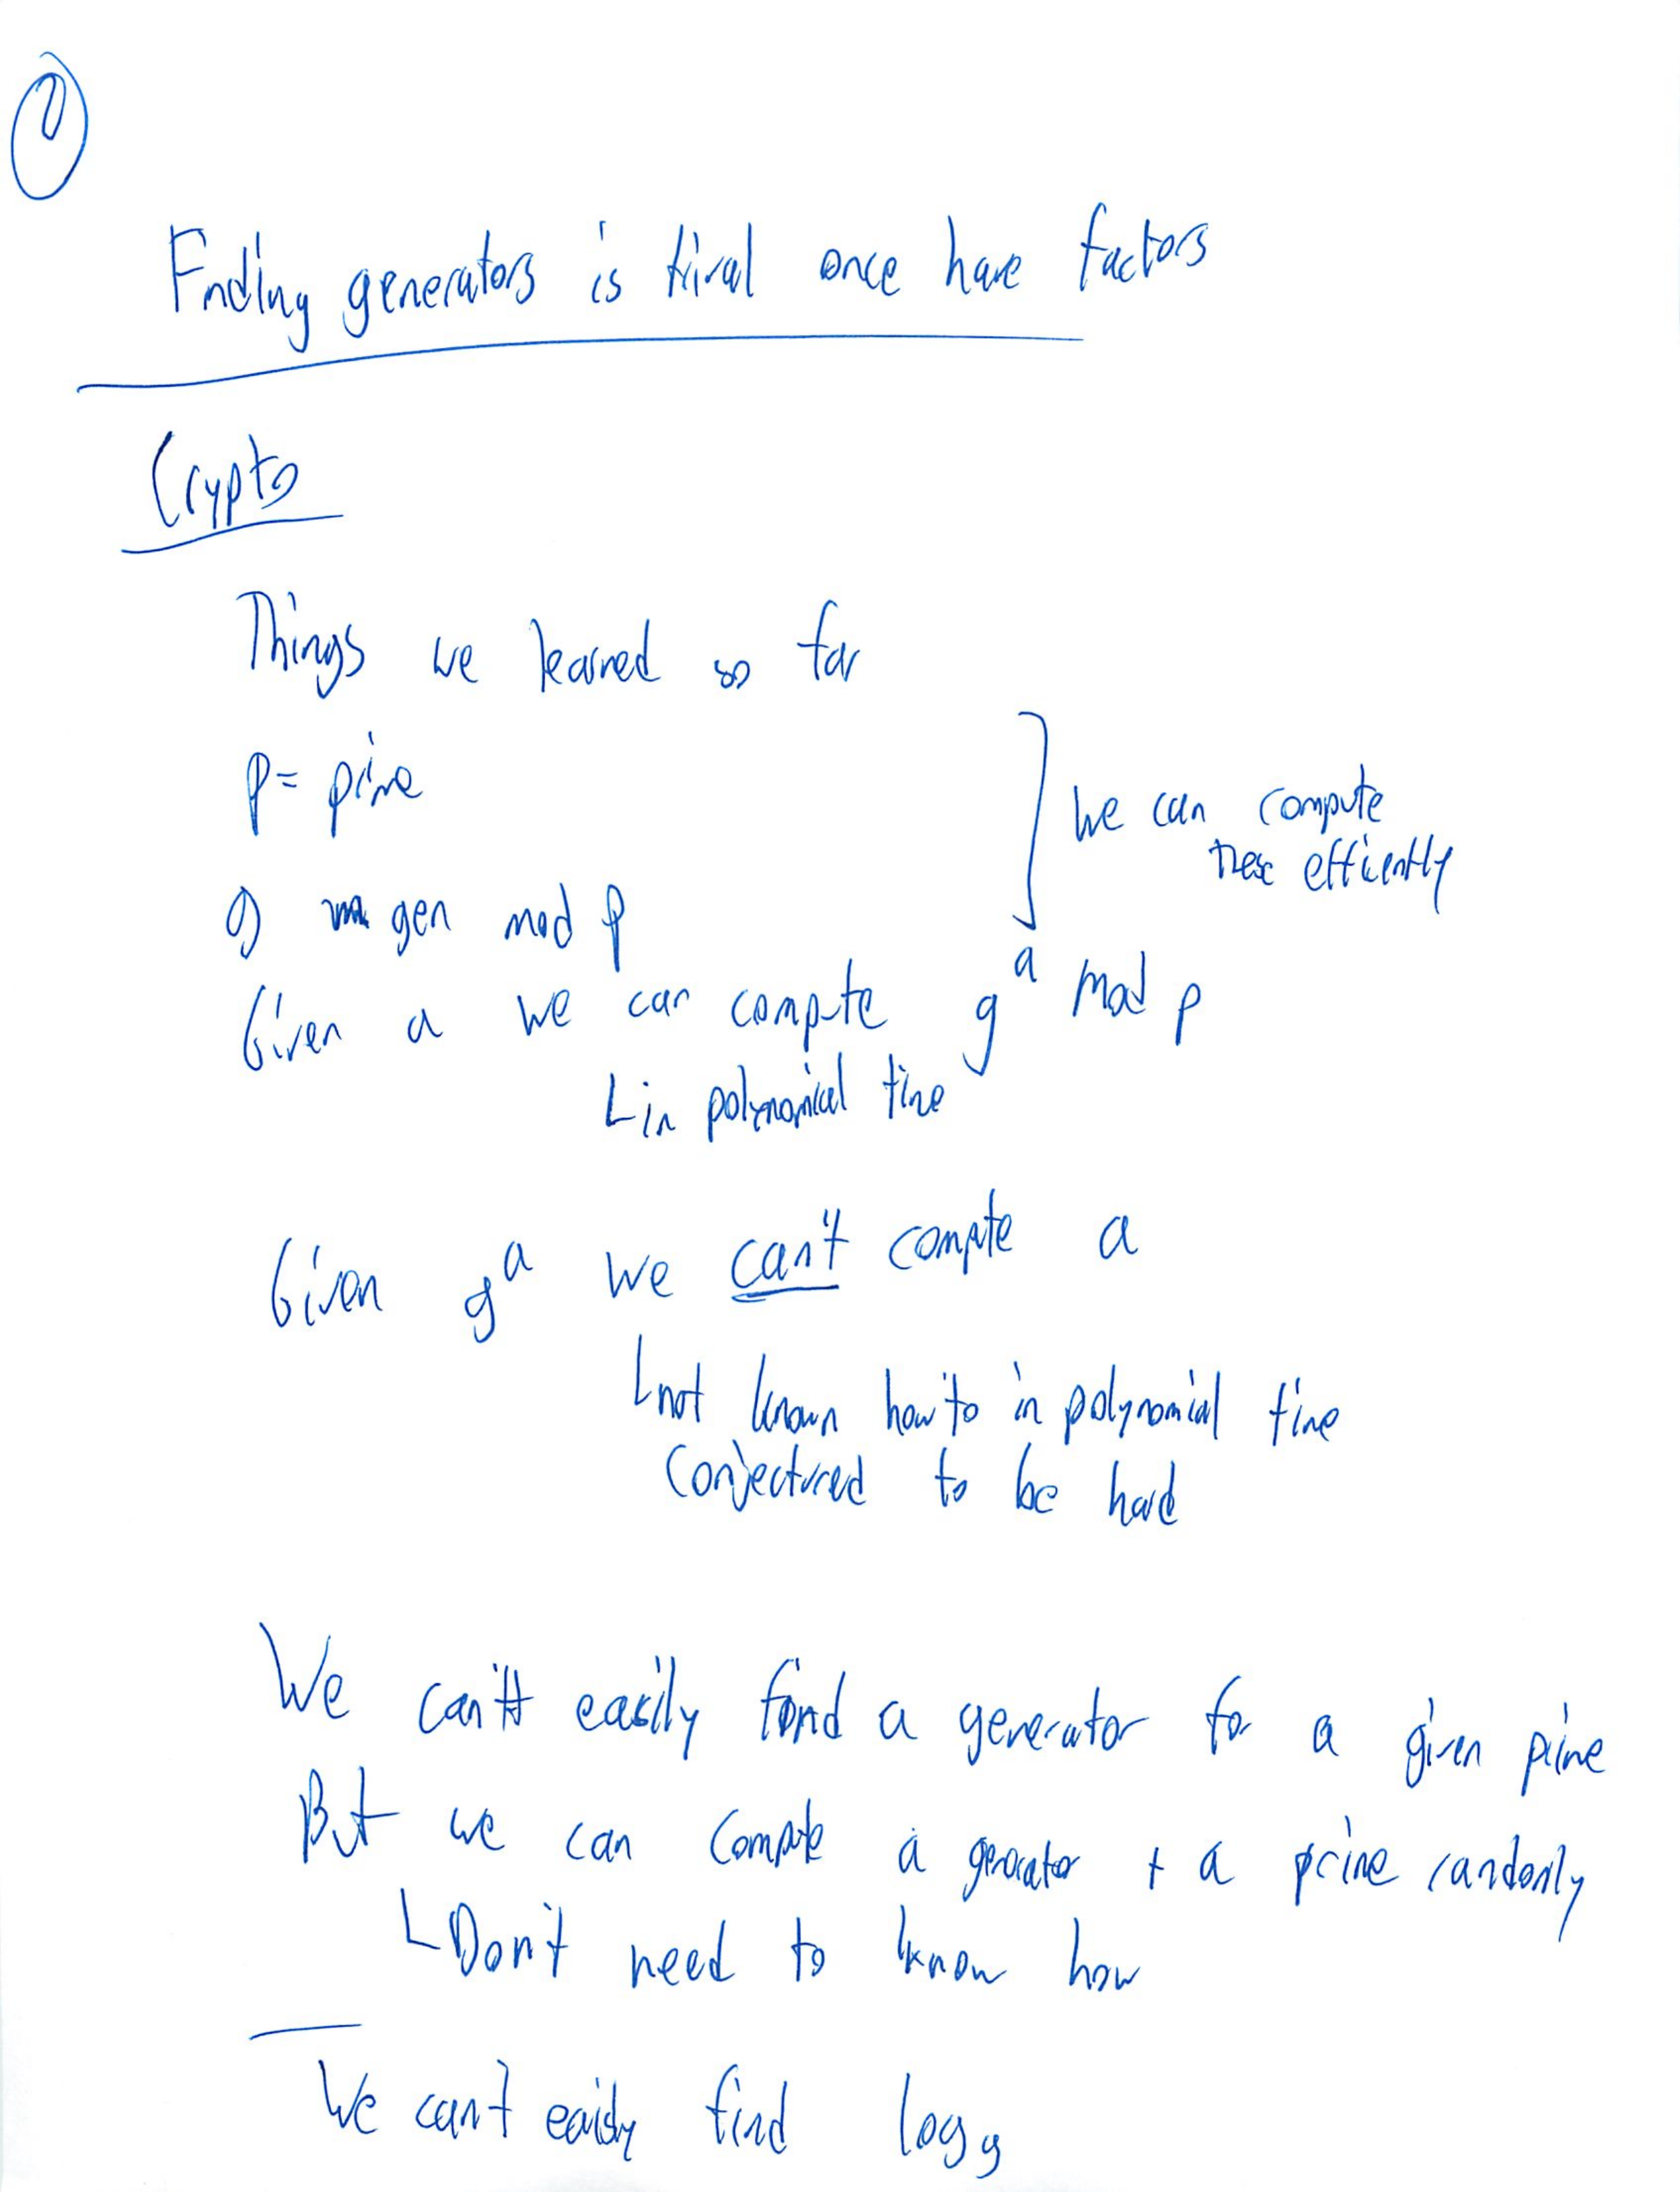 Finding generators is trival once have factors
Crypto
Things we learned so far
p = prime
g gen mod p
] we can compute
these efficently
Given a we can compute g^a mod p
└ in polynomial time
Given g^a we can't compute a
└ not known how to in polynomial time
Conjectured to be hard
We can't easily find a generator for a given prime
But we can compute a generator + a prime randomly
└ Don't need to know how
We can't easily find log g